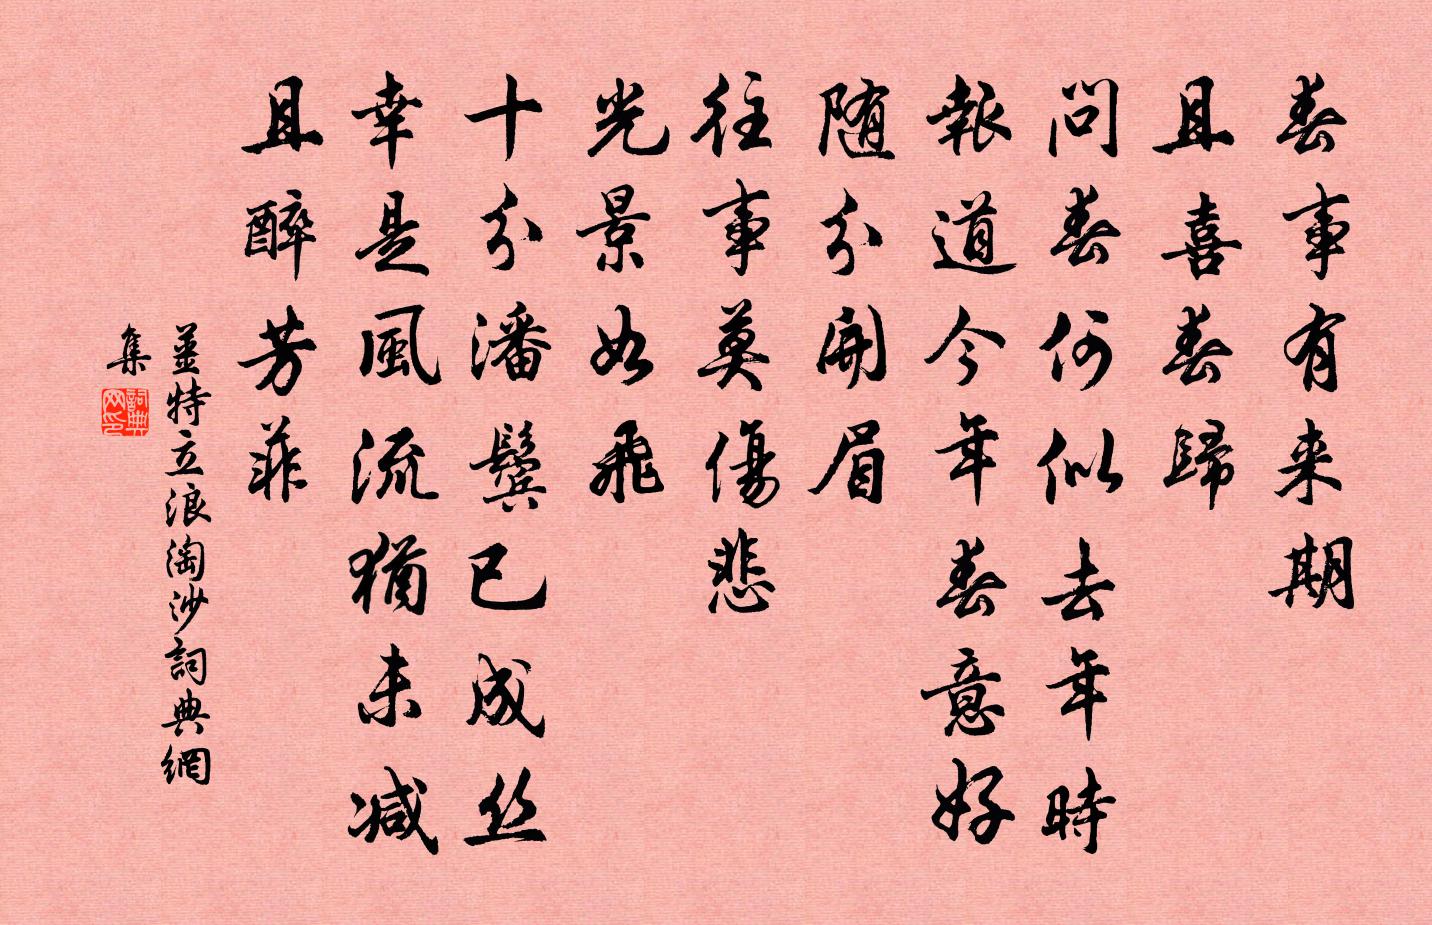 春事有来期
且喜春歸
問春何似去年時
報道今年春意好
随分開眉
往事莫傷悲
光景如飛
十分潘鬢已成丝
幸是風流猶未减
且醉芳菲
姜特立浪淘沙詞典網
集
詞典
网印